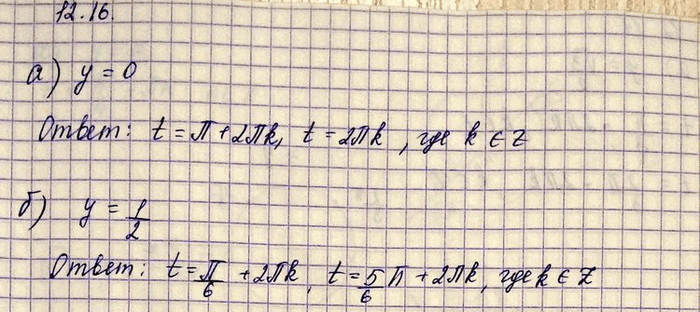 12.16.
а) y = 0
Ответ: t = π + 2πk, t = 2πk, где k ∈ Z
б) y = 1/2
Ответ: t = π/6 + 2πk, t = 5/6 π + 2πk, где k ∈ Z